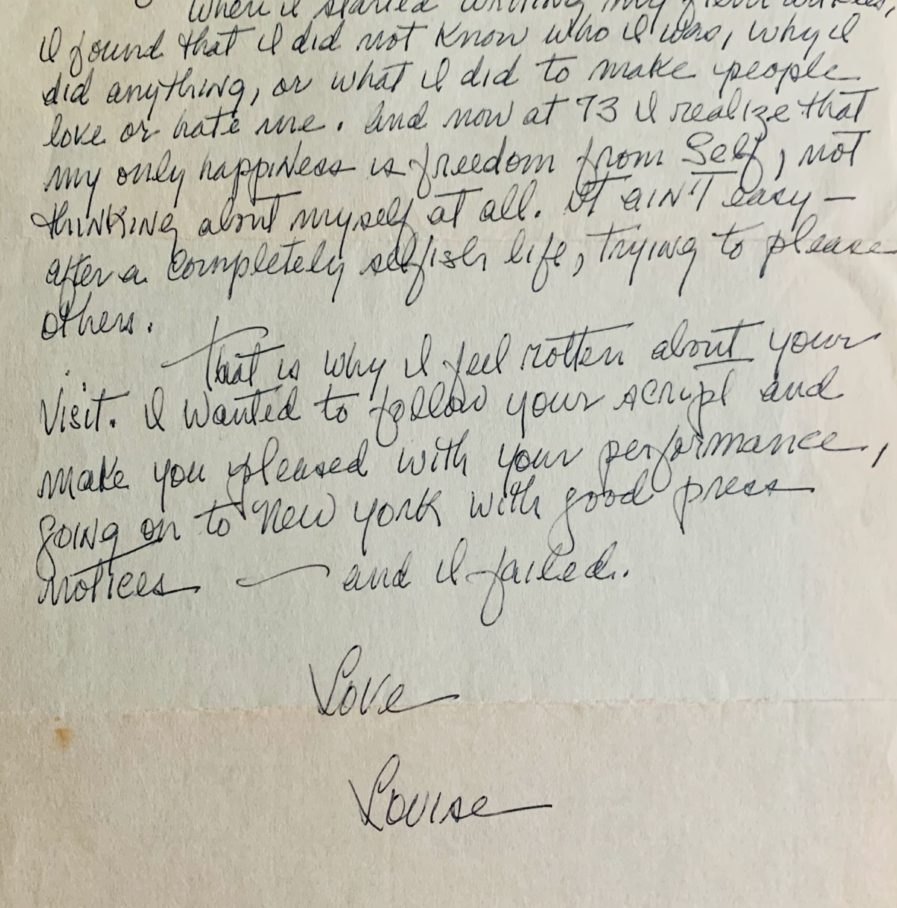 When I started writing my
I found that I did not know who I was, why I
did anything, or what I did to make people
love or hate me. And now at 73 I realize that
my only happiness is freedom from Self, not
thinking about myself at all. It ain't easy —
after a completely selfish life, trying to please
others.
That is why I feel rotten about your
visit. I wanted to follow your script and
make you pleased with your performance,
going on to New York with good press
notices — and I failed.
Love
Louise